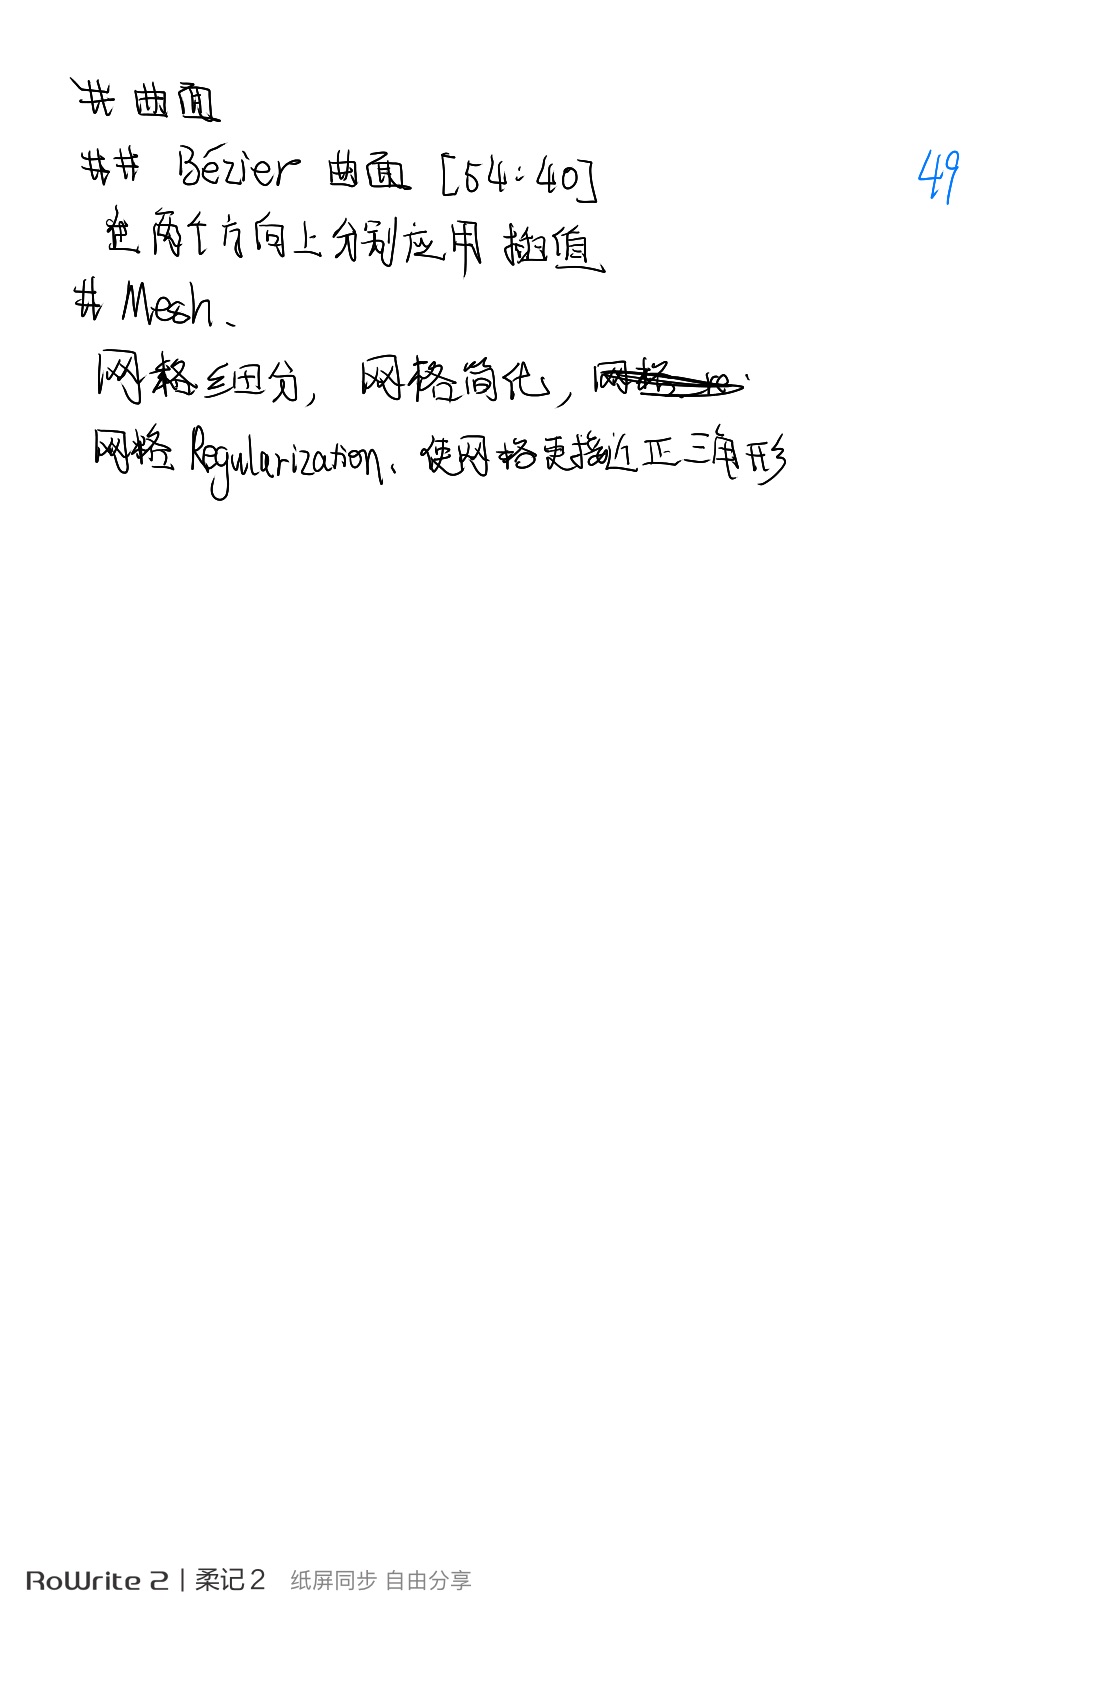 # 曲面
## Bézier 曲面 [54:40]
49
在两个方向上分别应用 插值
# Mesh、
网格细分, 网格简化,
网格 Regularization、使网格更接近正三角形
RoWrite 2 | 柔记 2 纸屏同步 自由分享